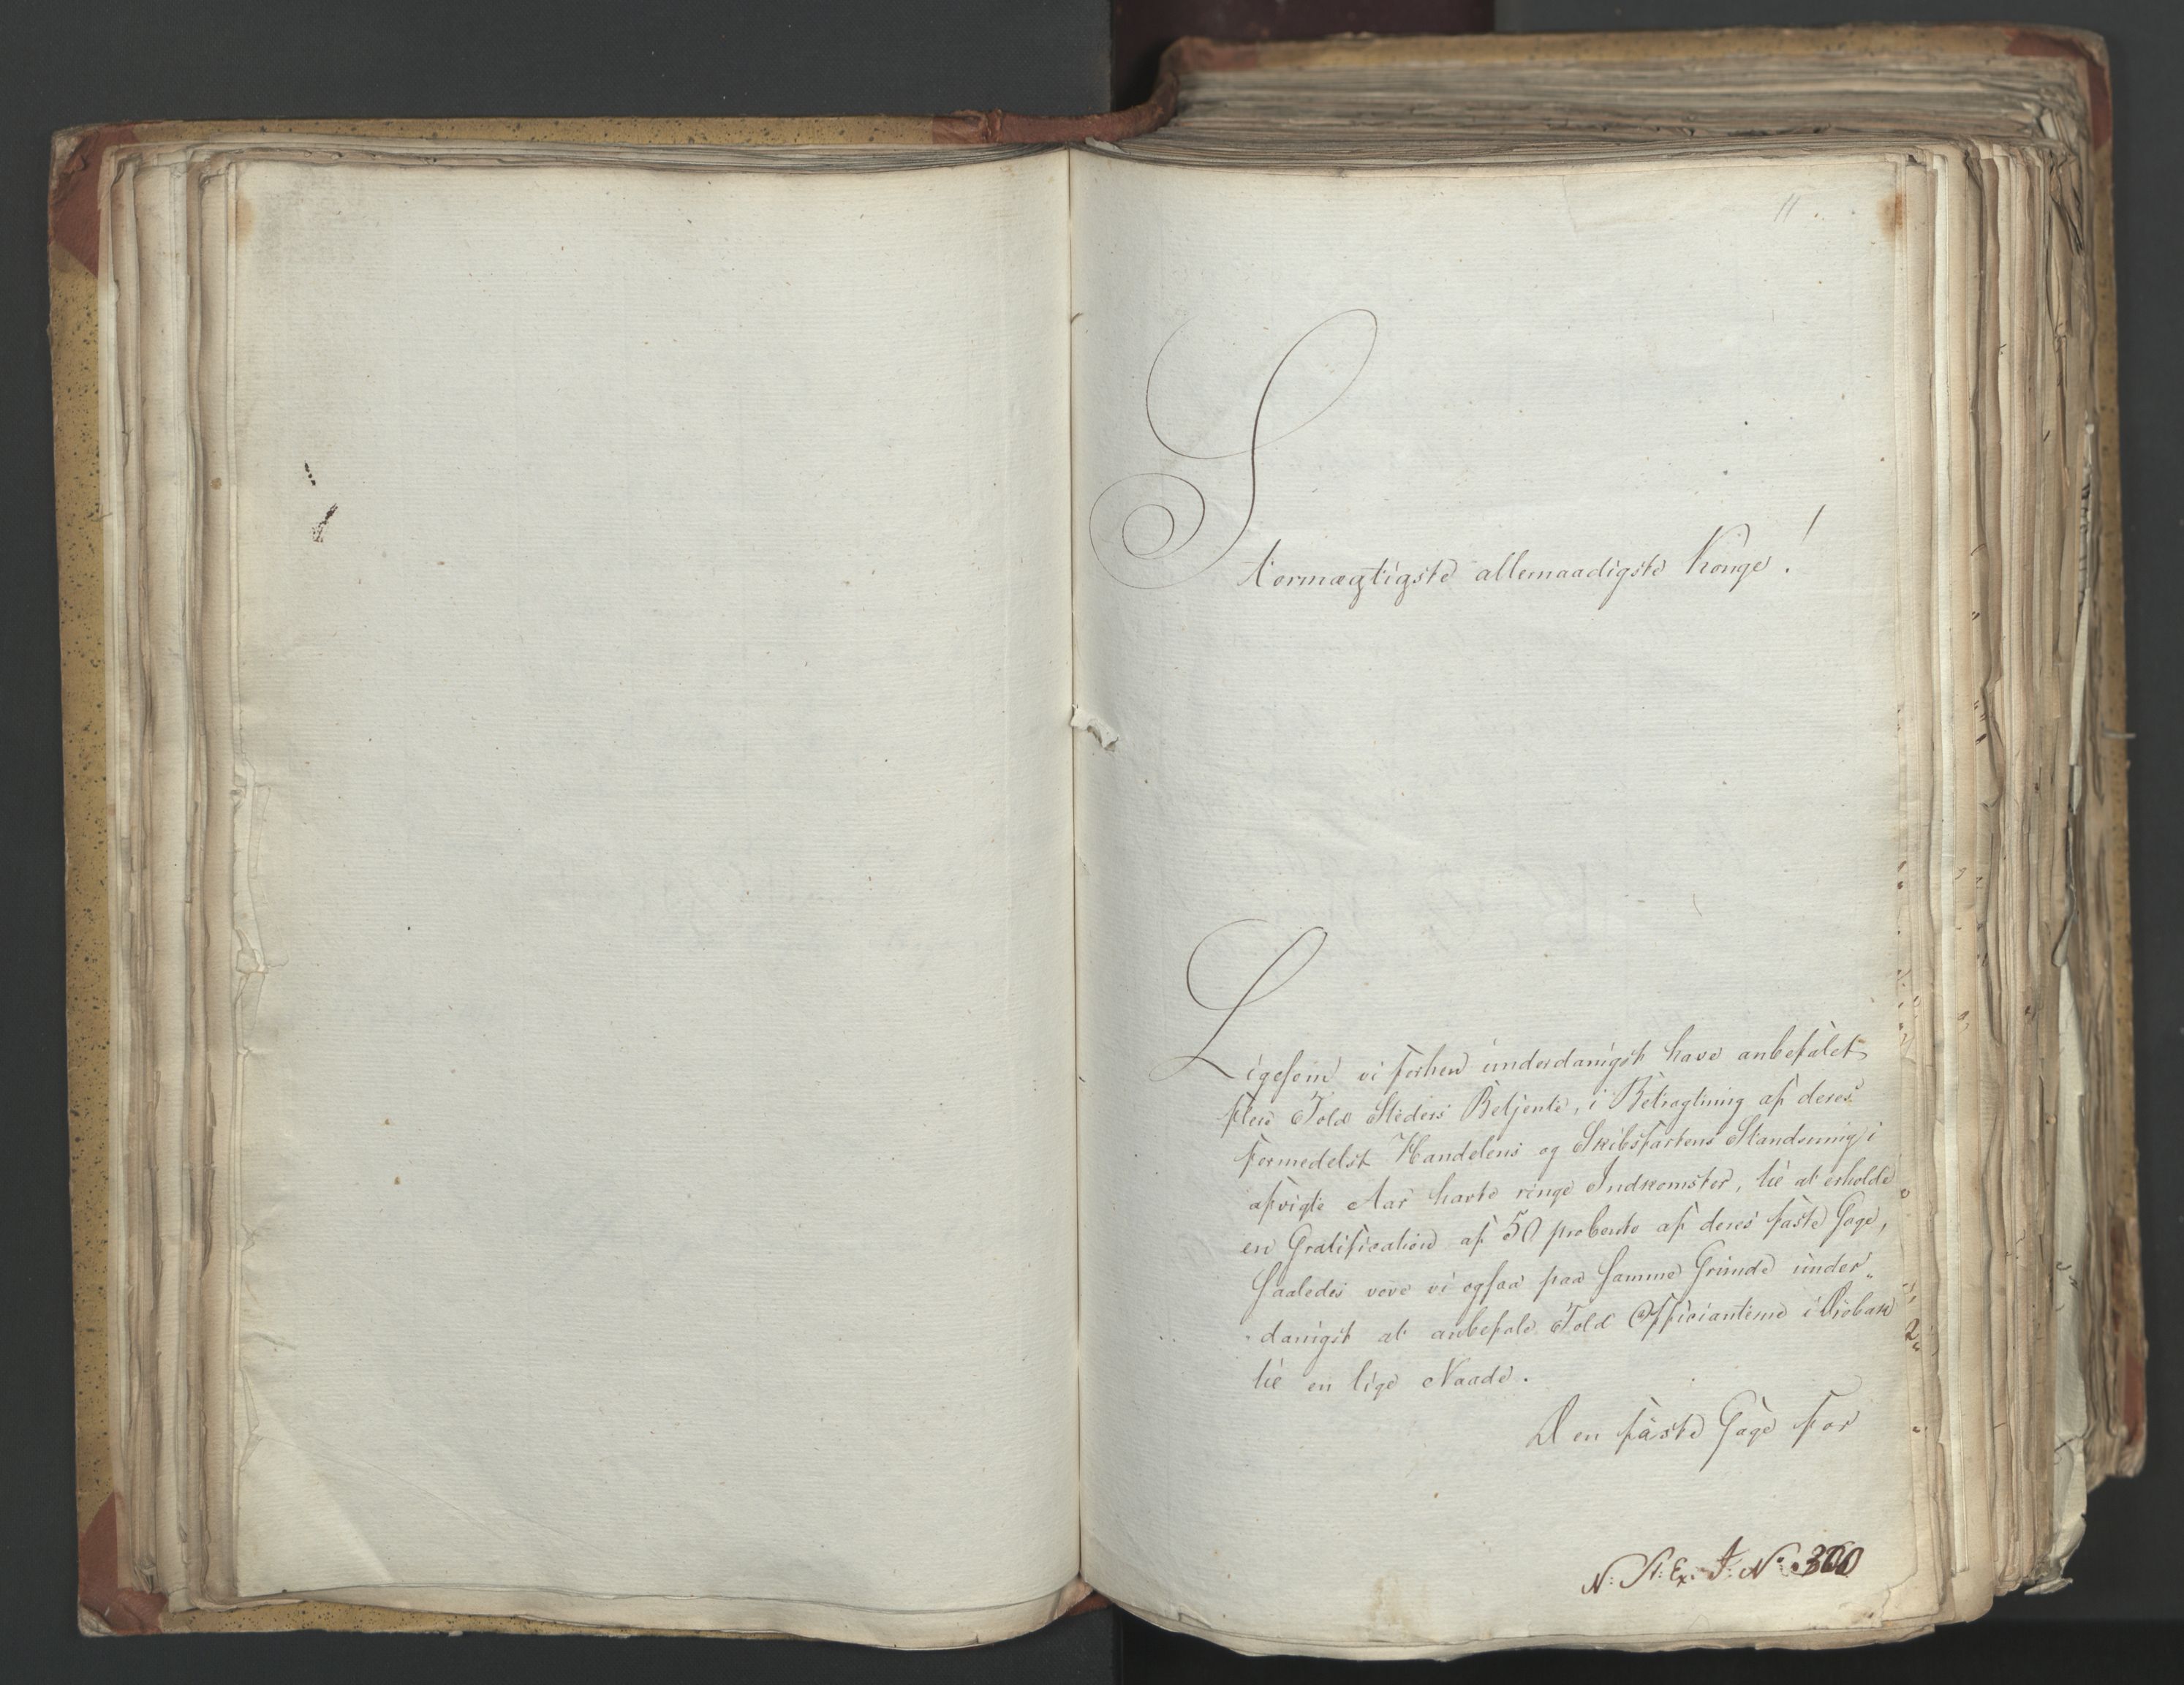 11
Stormægtigste allernaadigste Konge!
Ligesom vi forhen underdanigst have anbefalet
flere Told Steders Betjente, i Betragtning af deres
formedelst Handelens og Skibsfartens Standsning i
afvigte Aar havte ringe Indkomster, til at erholde
en Gratification af 50 procento af deres faste Gage,
saaledes vove vi ogsaa paa samme Grunde under„
danigst at anbefale Told Officianterne i Drøbak
til en lige Naade.
Den faste Gage for
N: St: Ex: J: No 300